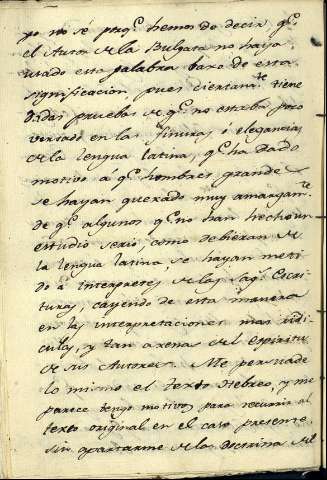 yo no sé pr q.e hemos de decir q.e
el Autor de la Bulgata no haya
usado esta palabra baxo de esta
significación pues ciertam.te tiene
dadas pruebas de q.e no estaba poco
versado en las finuras, i elegancias
de la lengua latina, q.e ha dado
motivo a q.e hombres grandes
se hayan quexado muy amargam.te
de q.e algunos q.e no han hecho un
estudio serio, como debieran de
la lengua latina, se hayan meti
do à interpretes de las sag.s Escri
turas, cayendo de esta manera
en las interpretaciones mas ridi
culas, y tan agenas del Espiritu
de sus Autores. Me persuade
lo mismo el texto Hebreo, y me
parece tengo motivos para recurrir al
texto original en el caso presente
sin apartarme de la Doctrina del